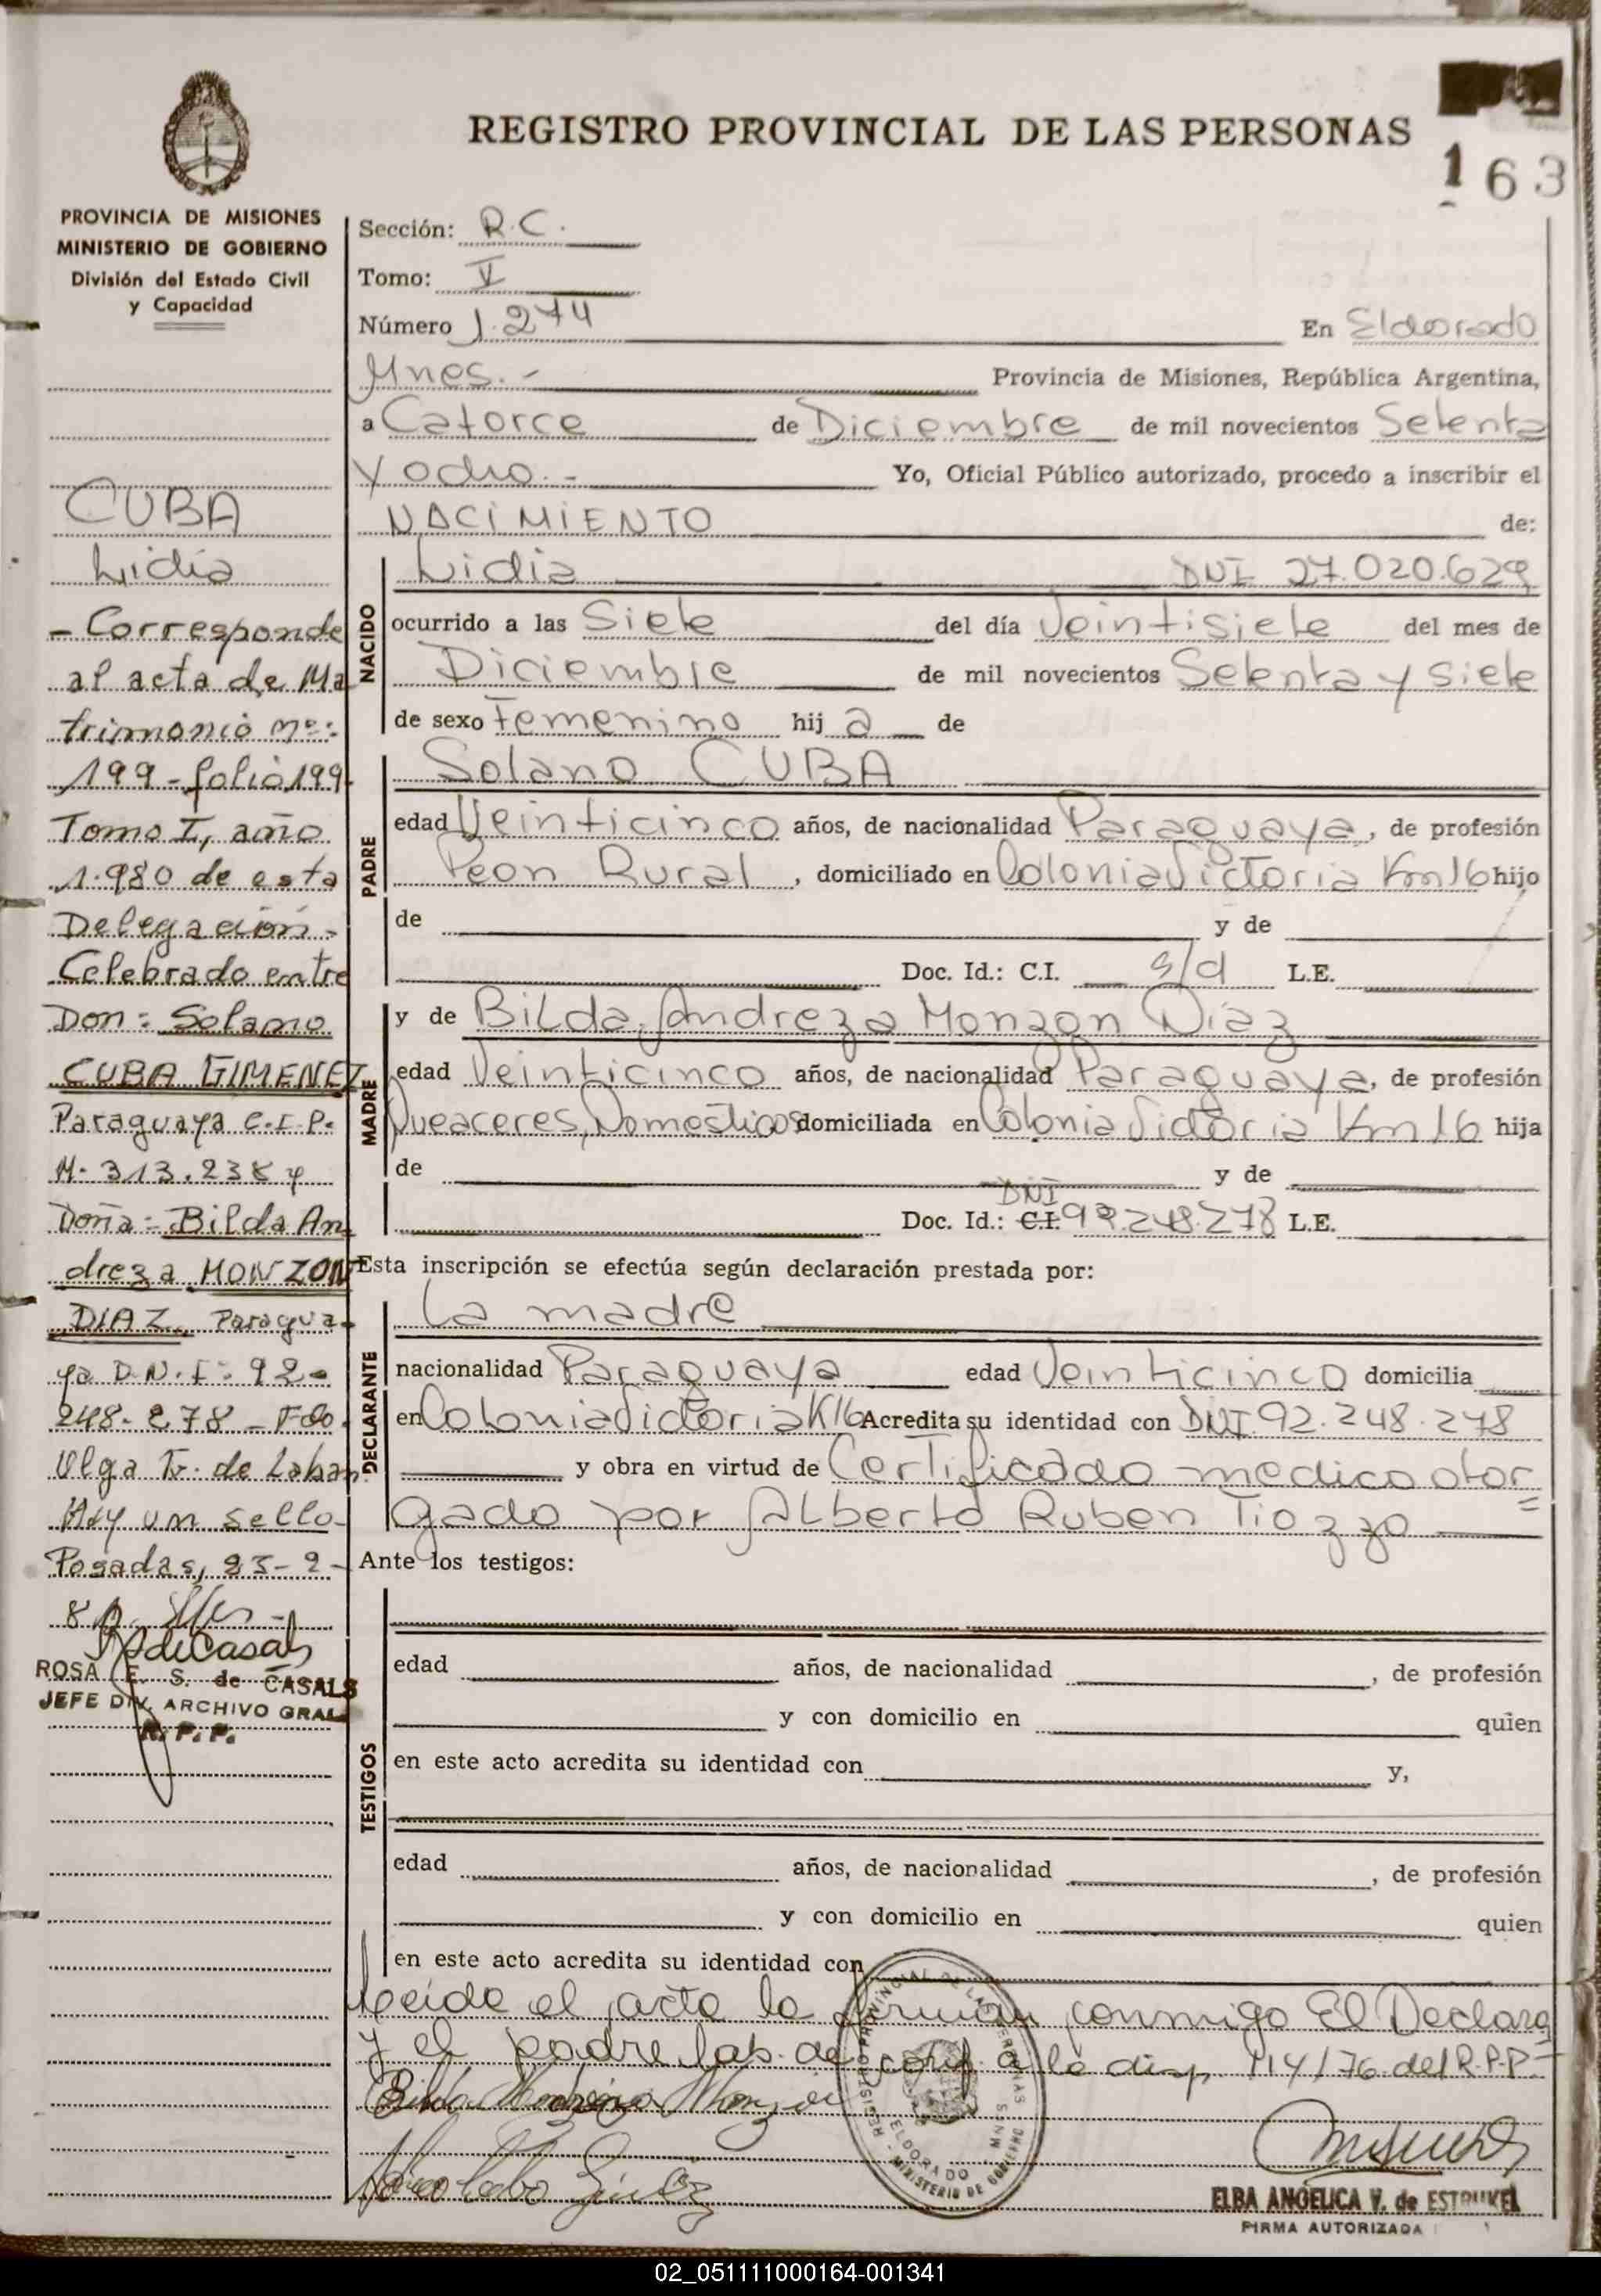 REGISTRO PROVINCIAL DE LAS PERSONAS
163
PROVINCIA DE MISIONES
MINISTERIO DE GOBIERNO
División del Estado Civil
y Capacidad
Sección: R.C.
Tomo: V
Número 1.274 En Eldorado
Mnes.- Provincia de Misiones, República Argentina,
a Catorce de Diciembre de mil novecientos Setenta
y ocho.- Yo, Oficial Público autorizado, procedo a inscribir el
NACIMIENTO de:
NACIDO
Lidia DNI 27.020.629
ocurrido a las Siete del día Veintisiete del mes de
Diciembre de mil novecientos Setenta y Siete
de sexo Femenino hij a de
PADRE
Solano CUBA
edad Veinticinco años, de nacionalidad Paraguaya, de profesión
Peon Rural, domiciliado en Colonia Victoria Km 16 hijo
de y de
Doc. Id.: C.I. s/d L.E.
MADRE
y de Bilda Andreza Monzon Diaz
edad Veinticinco años, de nacionalidad Paraguaya, de profesión
Queaceres Domesticos domiciliada en Colonia Victoria Km 16 hija
de y de
DNI
Doc. Id.: C.I. 92.248.278 L.E.
Esta inscripción se efectúa según declaración prestada por:
DECLARANTE
La madre
nacionalidad Paraguaya edad Veinticinco domicilia
en Colonia Victoria K16 Acredita su identidad con DNI 92.248.278
y obra en virtud de Certificado medico otor
gado por Alberto Ruben Tiozzo
Ante los testigos:
TESTIGOS
edad años, de nacionalidad , de profesión
y con domicilio en quien
en este acto acredita su identidad con y,
edad años, de nacionalidad , de profesión
y con domicilio en quien
en este acto acredita su identidad con
Leida el acta la firman conmigo El Declara
y el padre lab. de conf. a la disp. 114/76 del R.P.P.
Bilda Andreza Monzon
ELBA ANGELICA V. de ESTRUKEL
FIRMA AUTORIZADA
REGISTRO PROVINCIAL DE LAS PERSONAS
ELDORADO MNS
MINISTERIO DE GOBIERNO
CUBA
Lidia
- Corresponde
al acta de Ma
trimonio Nº:
199 - folio 199-
Tomo I, año
1.980 de esta
Delegación.-
Celebrado entre
Don: Solano
CUBA GIMENEZ
Paraguaya C.I.P.
Nº 313.238 y
Doña: Bilda An
dreza MONZON
DIAZ, Paragua-
ya D.N.I: 92-
248-278 - Fdo.
Olga F. de Laban
Hay un sello-
Posadas, 23-2-
ROSA E. S. de CASALS
JEFE DIV. ARCHIVO GRAL
R. P. P.
02_051111000164-001341